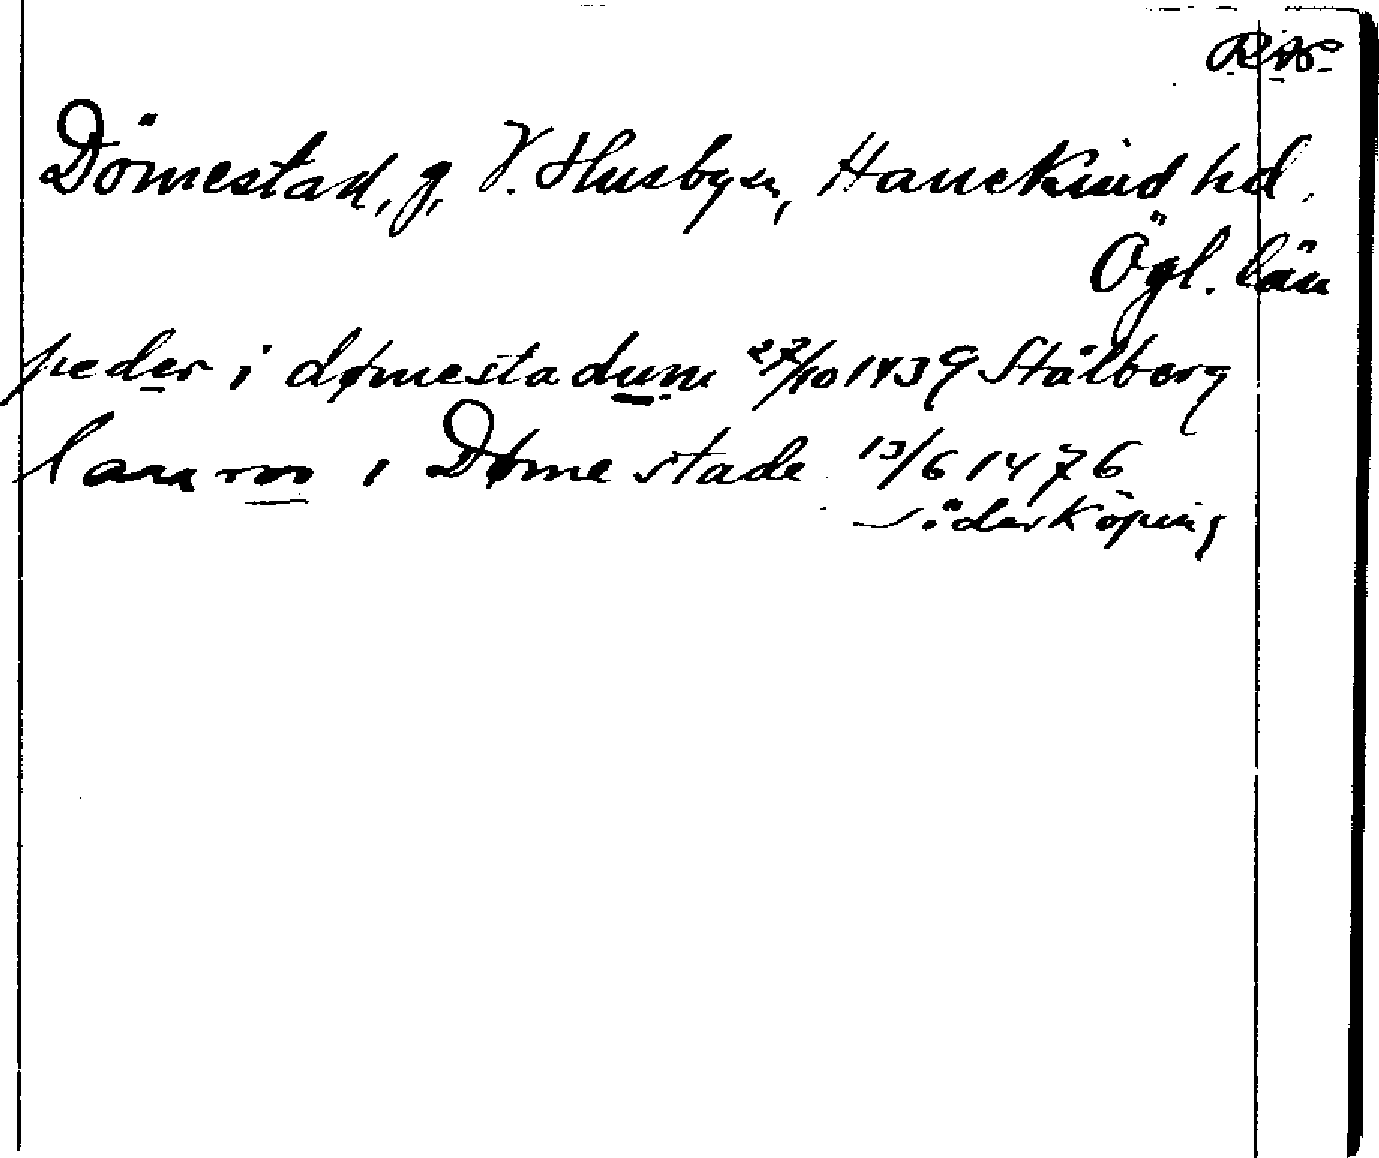 RAP
Dömestad, g, V. Husbyn, Hanekind hd.
Ögl. län
peder i dømestadum 27/10 1439 Stålberg
laurens i Dømestade 13/6 1476
Söderköping